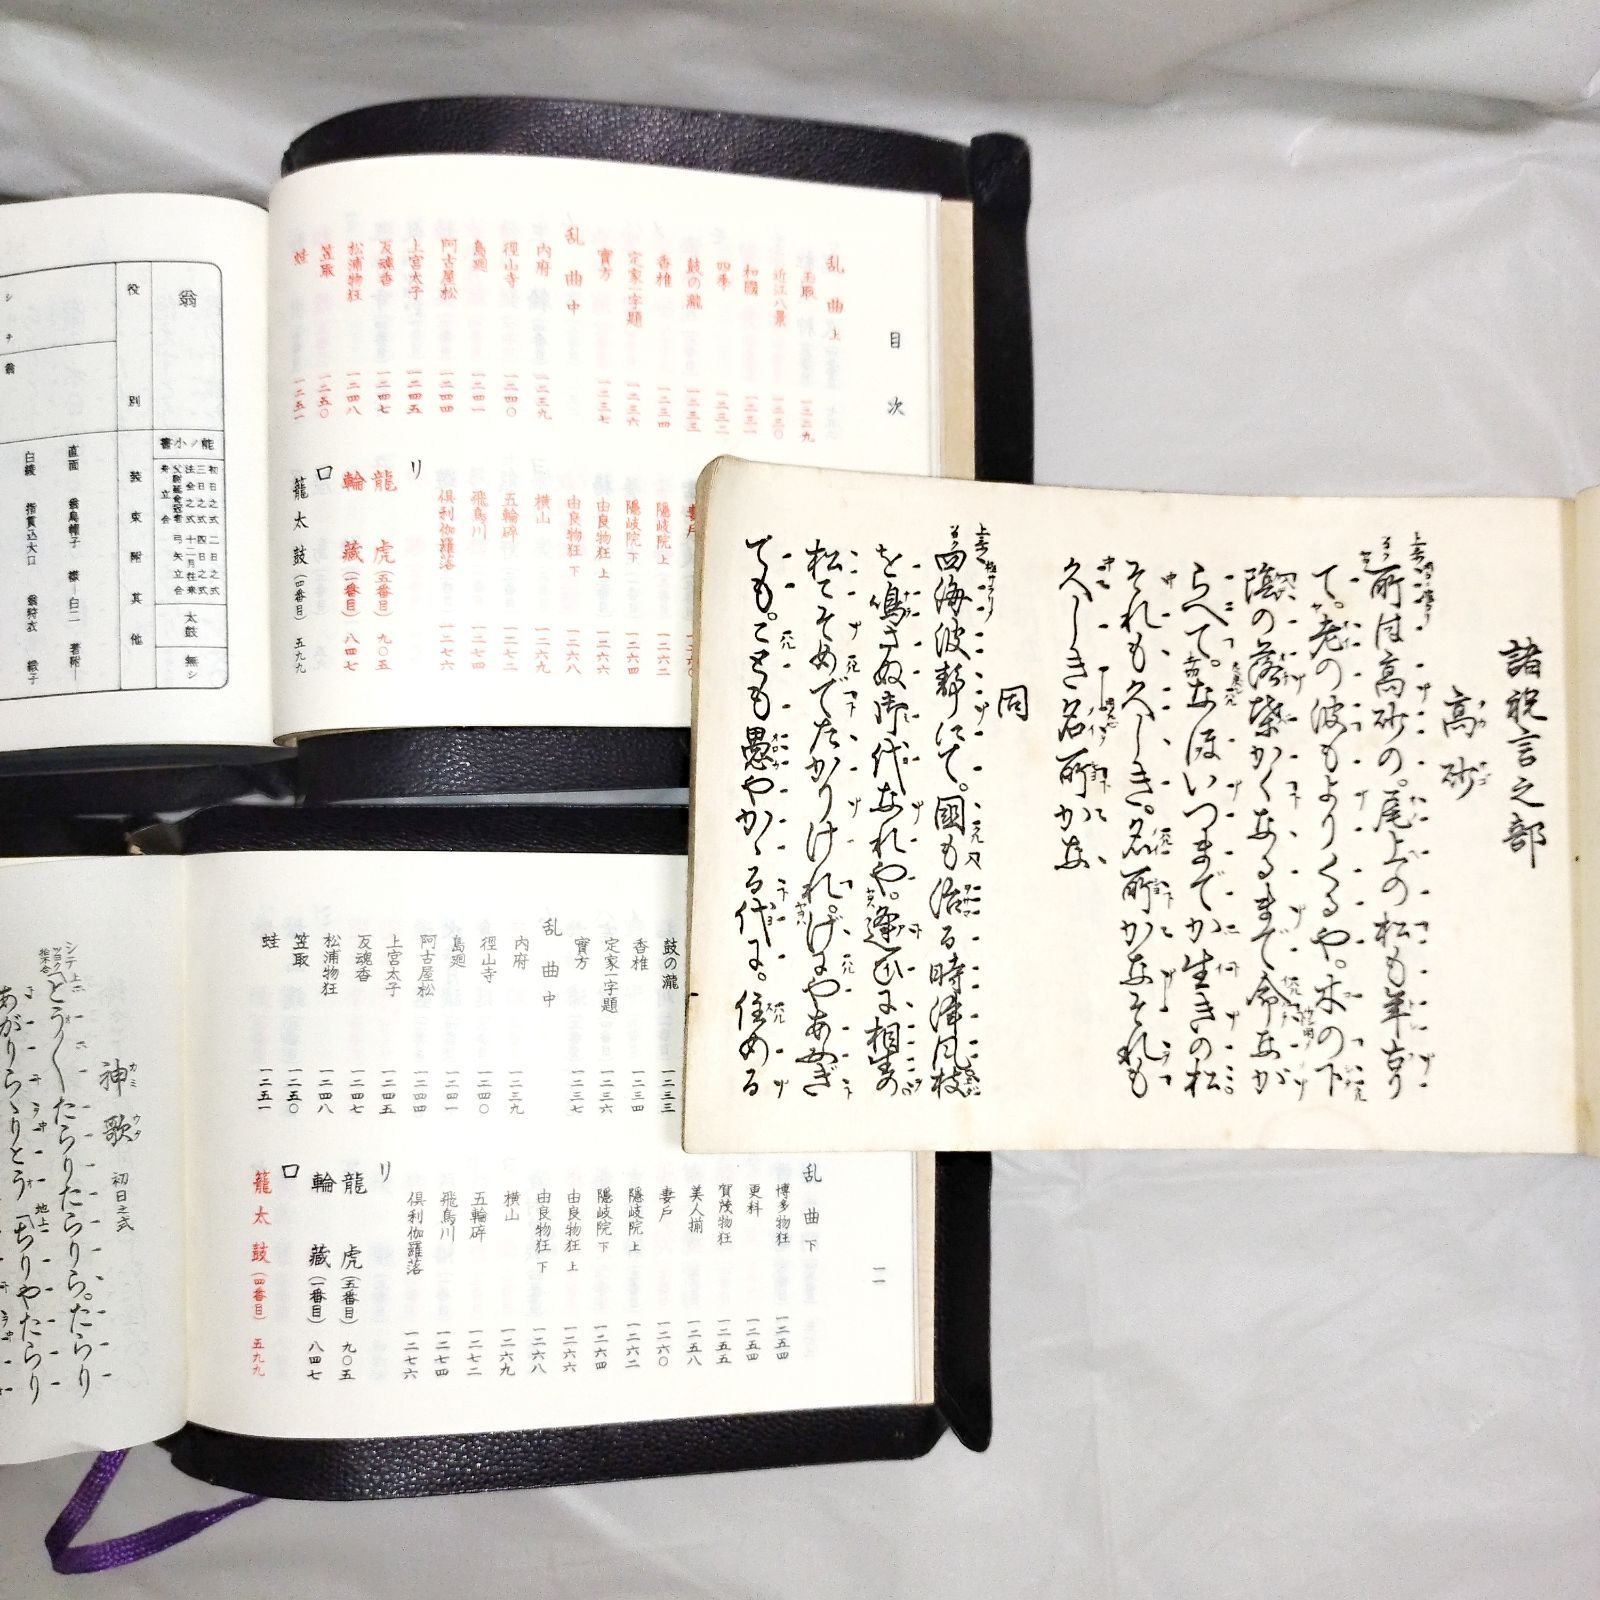 目次
乱曲上
玉取 一二二九
近江八景 一二三〇
和國 一二三一
四季 一二三二
鼓の瀧 一二三三
香椎 一二三四
定家一字題 一二三六
實方 一二三七
乱曲中
内府 一二三九
徑山寺 一二四〇
島廻 一二四一
阿古屋松 一二四四
上宮太子 一二四五
反魂香 一二四七
松浦物狂 一二四八
笠取 一二五〇
蛙 一二五一
妻戸 一二六〇
隱岐院 上 一二六二
隱岐院 下 一二六四
由良物狂 上 一二六六
由良物狂 下 一二六八
横山 一二六九
五輪碎 一二七二
飛鳥川 一二七四
倶利伽羅落 一二七六
リ
龍虎(五番目) 九〇五
輪藏(一番目) 八四七
ロ
籠太鼓(四番目) 五九九
翁
能ノ小書
初日之式 二日之式
三日之式 四日之式
法会之式 十二月往来
父尉延命冠者 弓矢立合
舟立合
太鼓 無シ
役別
装束附其他
シテ 翁
直面 翁烏帽子 襟―白二 著附―
白綾 指貫込大口 翁狩衣 緞子
諸祝言之部
高砂
タカサゴ
所は高砂の。尾上の松も年古り
て。老の波もよりくるや。木の下
陰の落葉かくなるまで命なが
らへて。なほいつまでか生きの松
それも久しき。名所かなそれも
久しき名所かな
同
四海波静にて。國も治る時津風枝
を鳴さぬ御代なれや。逢ひに相生の
松こそめでたかりけれ。げにやあふぎ
ても。ことも愚やかゝる代に。住める
鼓の瀧 一二三三
香椎 一二三四
定家一字題 一二三六
實方 一二三七
乱曲中
内府 一二三九
徑山寺 一二四〇
島廻 一二四一
阿古屋松 一二四四
上宮太子 一二四五
反魂香 一二四七
松浦物狂 一二四八
笠取 一二五〇
蛙 一二五一
一一
乱曲下
博多物狂 一二五四
更科 一二五四
賀茂物狂 一二五五
美人揃 一二五八
妻戸 一二六〇
隱岐院 上 一二六二
隱岐院 下 一二六四
由良物狂 上 一二六六
由良物狂 下 一二六八
横山 一二六九
五輪碎 一二七二
飛鳥川 一二七四
倶利伽羅落 一二七六
リ
龍虎(五番目) 九〇五
輪藏(一番目) 八四七
ロ
籠太鼓(四番目) 五九九
神歌 初日之式
カミウタ
とう〱たらりたらりら。たらり
あがりらゝりとう 地上 ちりやたらり